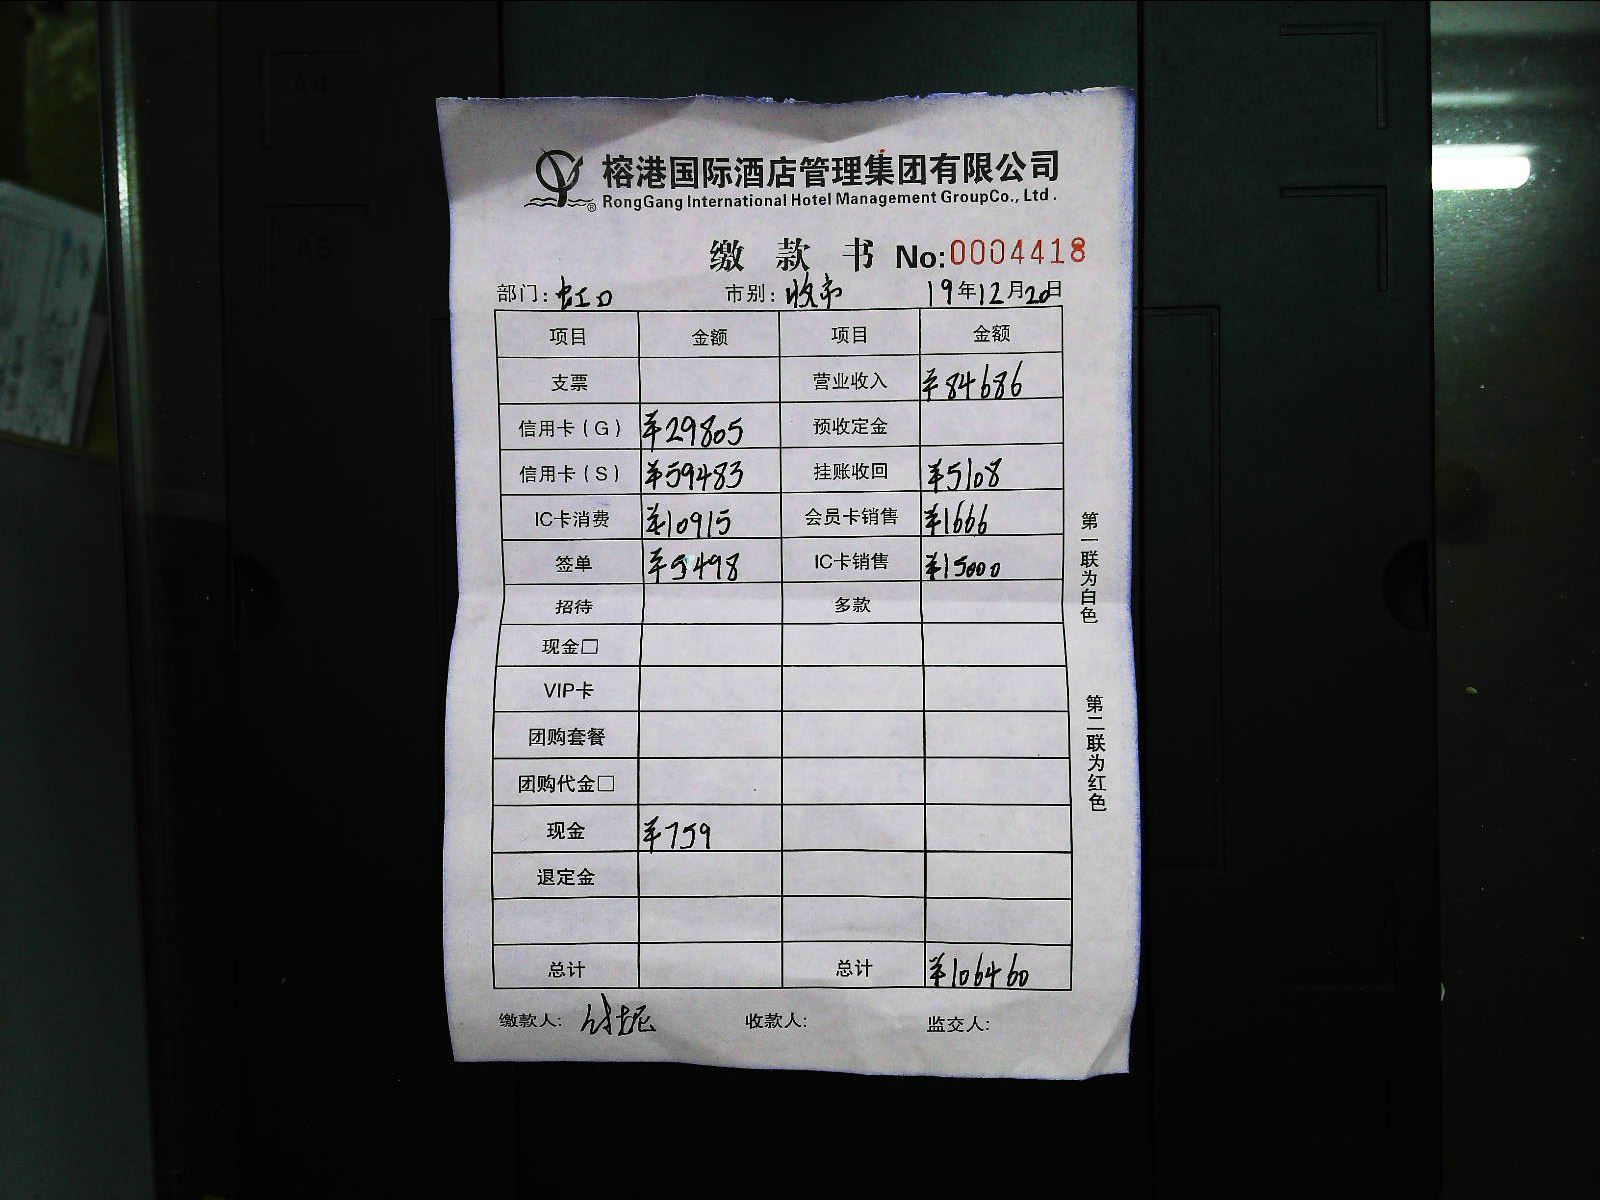 榕港国际酒店管理集团有限公司
RongGang International Hotel Management GroupCo., Ltd.
缴款书 No:0004418
部门: 虹口 市别: 收市 19年12月20日
项目 金额 项目 金额
支票 营业收入 ¥84686
信用卡(G) ¥29805 预收定金
信用卡(S) ¥59483 挂账收回 ¥5108
IC卡消费 ¥10915 会员卡销售 ¥1666
签单 ¥5498 IC卡销售 ¥15000
招待 多款
现金□
VIP卡
团购套餐
团购代金□
现金 ¥759
退定金
总计 总计 ¥106460
缴款人: 收款人: 监交人:
第一联为白色
第二联为红色